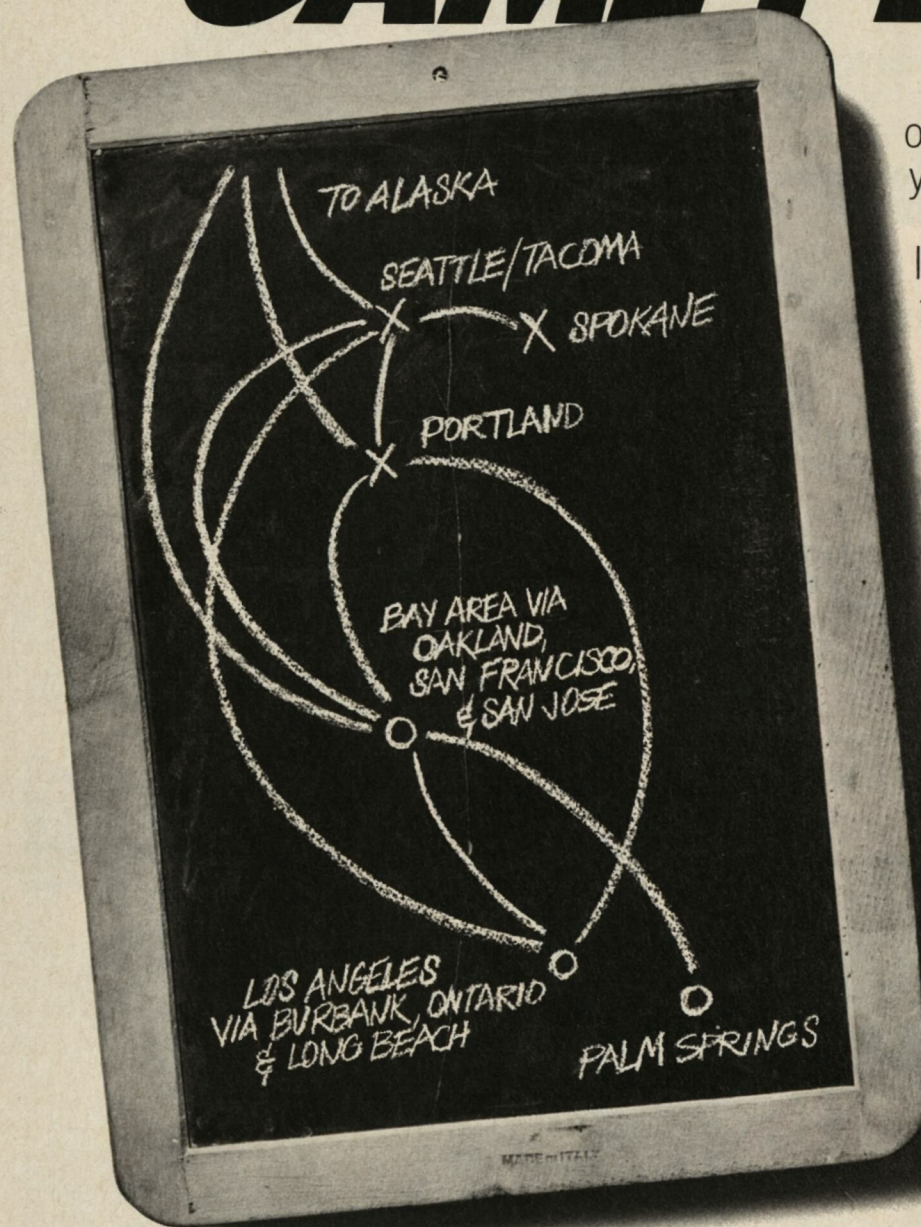 TO ALASKA
SEATTLE/TACOMA
X SPOKANE
PORTLAND
BAY AREA VIA
OAKLAND,
SAN FRANCISCO,
& SAN JOSE
LOS ANGELES
VIA BURBANK, ONTARIO
& LONG BEACH
PALM SPRINGS
MADE IN ITALY